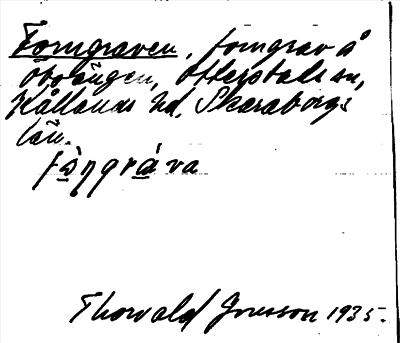 Forngraven, forngrav å
Öboängen, Otterstads sn,
Kållands hd, Skaraborgs
län.
fɔ̀ŋgráva
Thorvald Jonsson 1935.